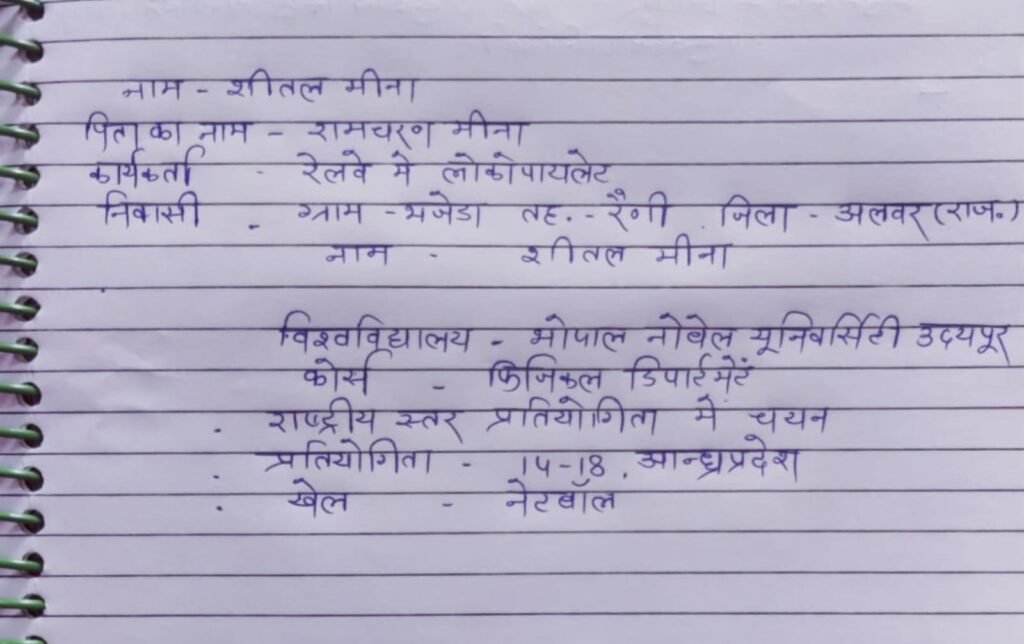 नाम - शीतल मीना
पिता का नाम - रामचरण मीना
कार्यकर्ता - रेलवे मे लोकोपायलेट
निवासी - ग्राम - भजेडा तह. - रैणी . जिला - अलवर (राज०)
नाम - शीतल मीना
विश्वविद्यालय - भोपाल नोबेल यूनिवर्सिटी उदयपूर
कोर्स - फिजिकल डिपार्टमेंटें
. राष्ट्रीय स्तर प्रतियोगिता मे चयन
. प्रतियोगिता - 14-18 . आन्ध्रप्रदेश
. खेल - नेटबॉल